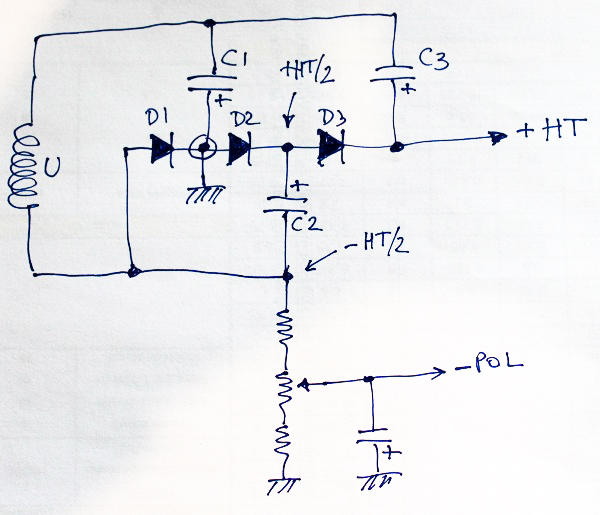 C1
+HT/2
C3
+
+
D1
D2
D3
+HT
U
+
C2
-HT/2
-POL
+